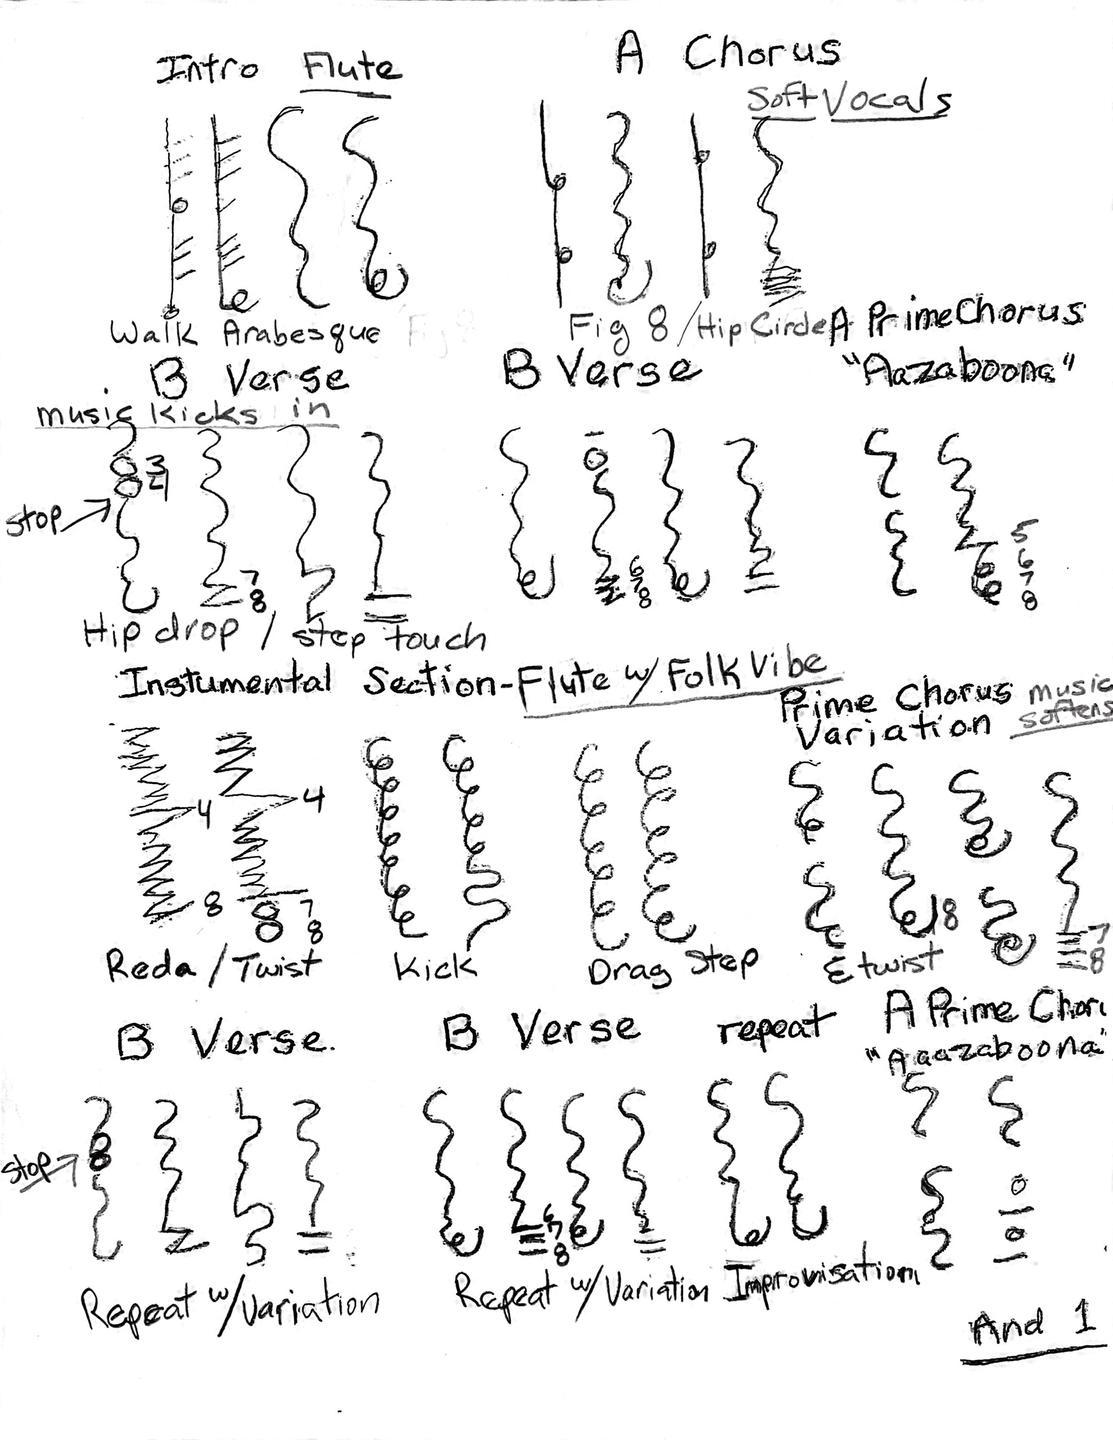 Intro Flute
A Chorus
Soft Vocals
Walk Arabesque
Fig 8 / Hip Circle
A Prime Chorus
"Aazaboona"
B Verse
music kicks in
B Verse
3
4
stop
7
8
6
7
8
5
6
7
8
Hip drop / step touch
Instumental Section - Flute w/ Folk Vibe
Prime Chorus
Variation
music
softens
4
8
4
7
8
8
7
8
Reda / Twist
Kick
Drag Step
& twist
B Verse.
B Verse
repeat
A Prime Chor
"Aaazaboona"
stop
6
7
8
Repeat w/ Variation
Repeat w/ Variation
Improvisation
And 1